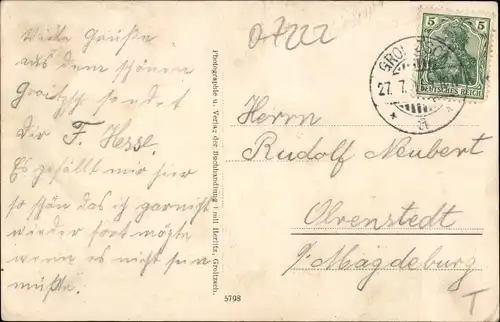 Viele Grüße
aus dem schönen
Groitzsch sendet
Dir F. Hesse.
Es gefällt mir hier
so schön das ich garnicht
wieder fort mögte
wenn es nicht sein
müßte.
07222
Photographie u. Verlag der Buchhandlung Emil Herlitz, Groitzsch.
5798
5 5
DEUTSCHES REICH
27. 7.
Herrn
Rudolf Neubert
Olvenstedt
b/Magdeburg
T